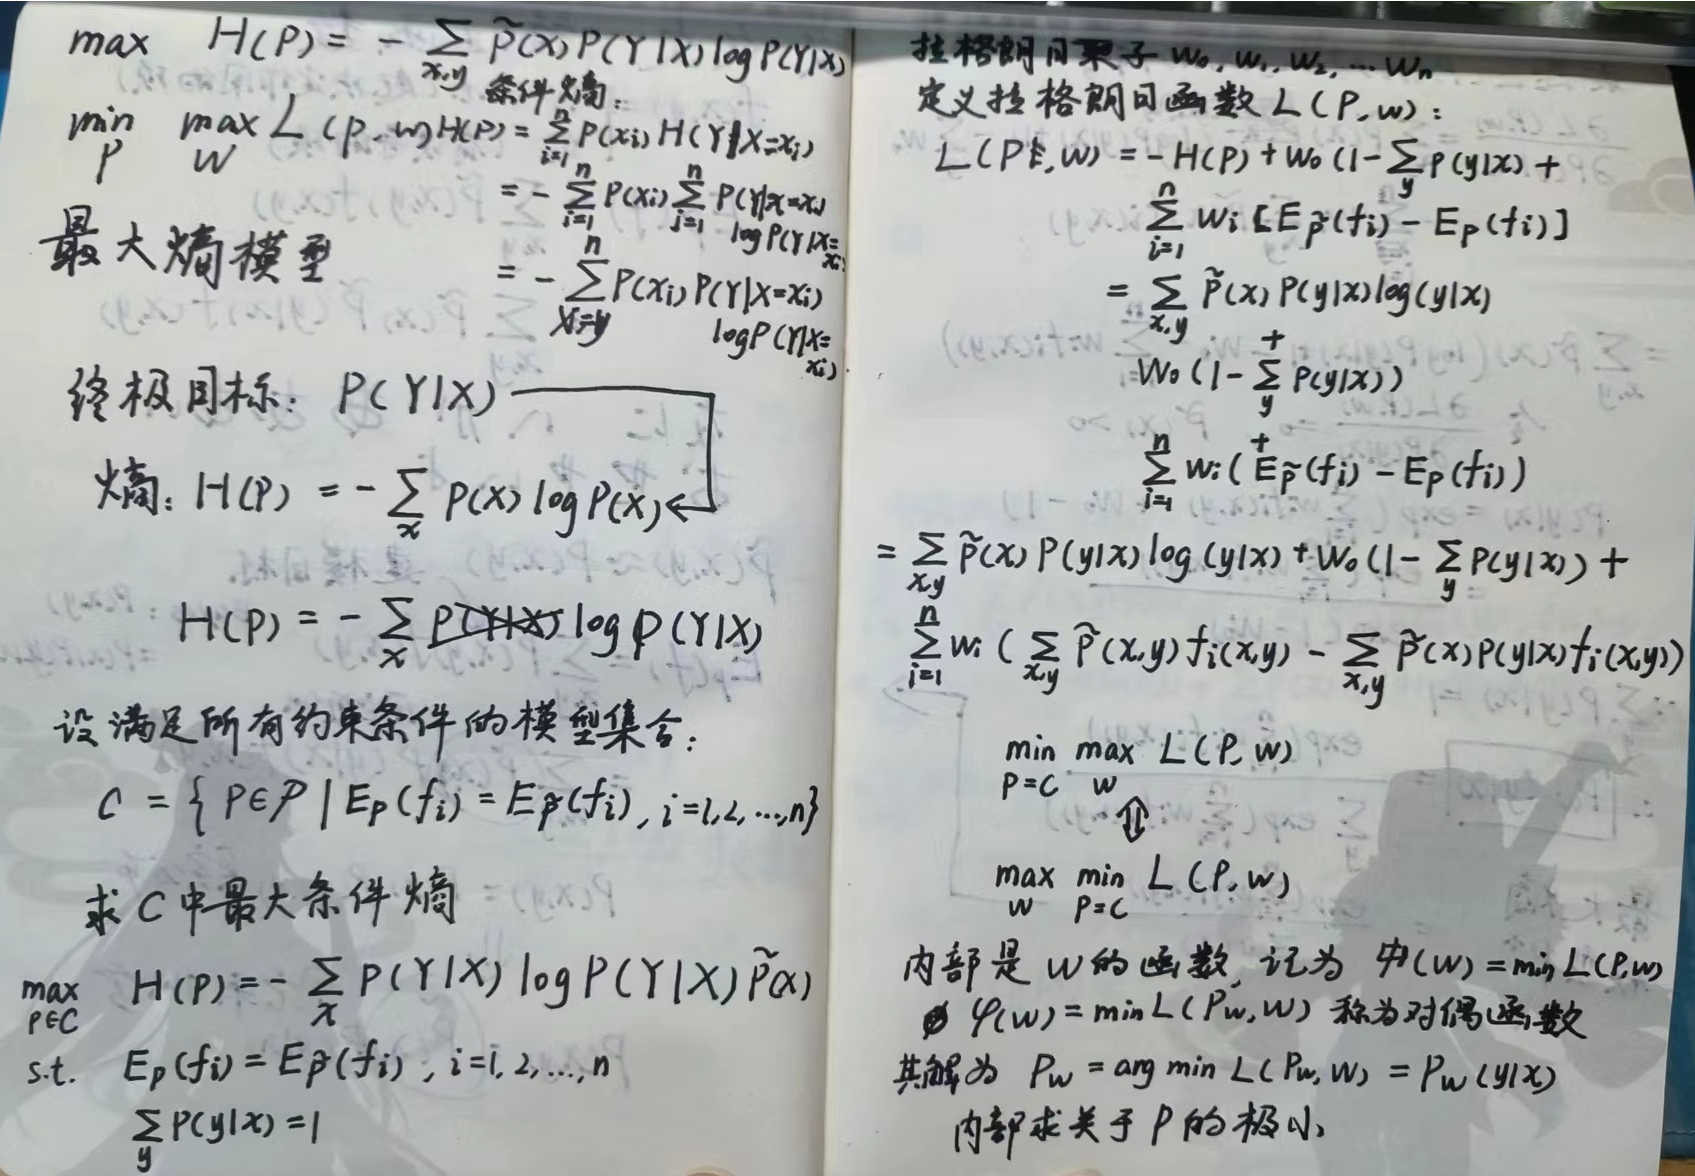 max H(P) = - ∑_{x,y} P̃(x) P(Y|X) log P(Y|X)
条件熵:
min_P max_W L(P, w) H(P) = ∑_{i=1}^{n} P(xi) H(Y|X=xi)
= - ∑_{i=1}^{n} P(xi) ∑_{j=1}^{n} P(Y|x=xi) log P(Y|X=xi)
最大熵模型
= - ∑^{n} P(xi) P(Y|X=xi) log P(Y|X=xi)
终极目标: P(Y|X)
熵: H(P) = - ∑_x P(X) log P(X)
H(P) = - ∑_x P(Y|X) log P(Y|X)
设满足所有约束条件的模型集合:
C = { P∈𝒫 | E_P(fi) = E_P̃(fi), i=1,2,...,n}
求C中最大条件熵
max_{P∈C} H(P) = - ∑_x P(Y|X) log P(Y|X) P̃(x)
s.t. E_P(fi) = E_P̃(fi), i=1,2,...,n
∑_y P(y|x) = 1
拉格朗日乘子 W0, W1, W2, ... Wn
定义拉格朗日函数 L(P, w):
L(P, w) = - H(P) + W0 (1 - ∑_y P(y|x) +
∑_{i=1}^{n} wi [E_P̃(fi) - E_P(fi)]
= ∑_{x,y} P̃(x) P(y|x) log(y|x)
+
W0 (1 - ∑_y P(y|x))
+
∑_{i=1}^{n} wi (E_P̃(fi) - E_P(fi))
= ∑_{x,y} P̃(x) P(y|x) log (y|x) + W0 (1 - ∑_y P(y|x)) +
∑_{i=1}^{n} wi (∑_{x,y} P̃(x,y) fi(x,y) - ∑_{x,y} P̃(x) P(y|x) fi(x,y))
min_{P=C} max_w L(P, w)
⇕
max_w min_{P=C} L(P, w)
内部是 w 的函数, 记为 φ(w) = min L(P,w)
φ(w) = min L(Pw, w) 称为对偶函数
其解为 Pw = arg min L(Pw, w) = Pw(y|x)
内部求关于 P 的极小